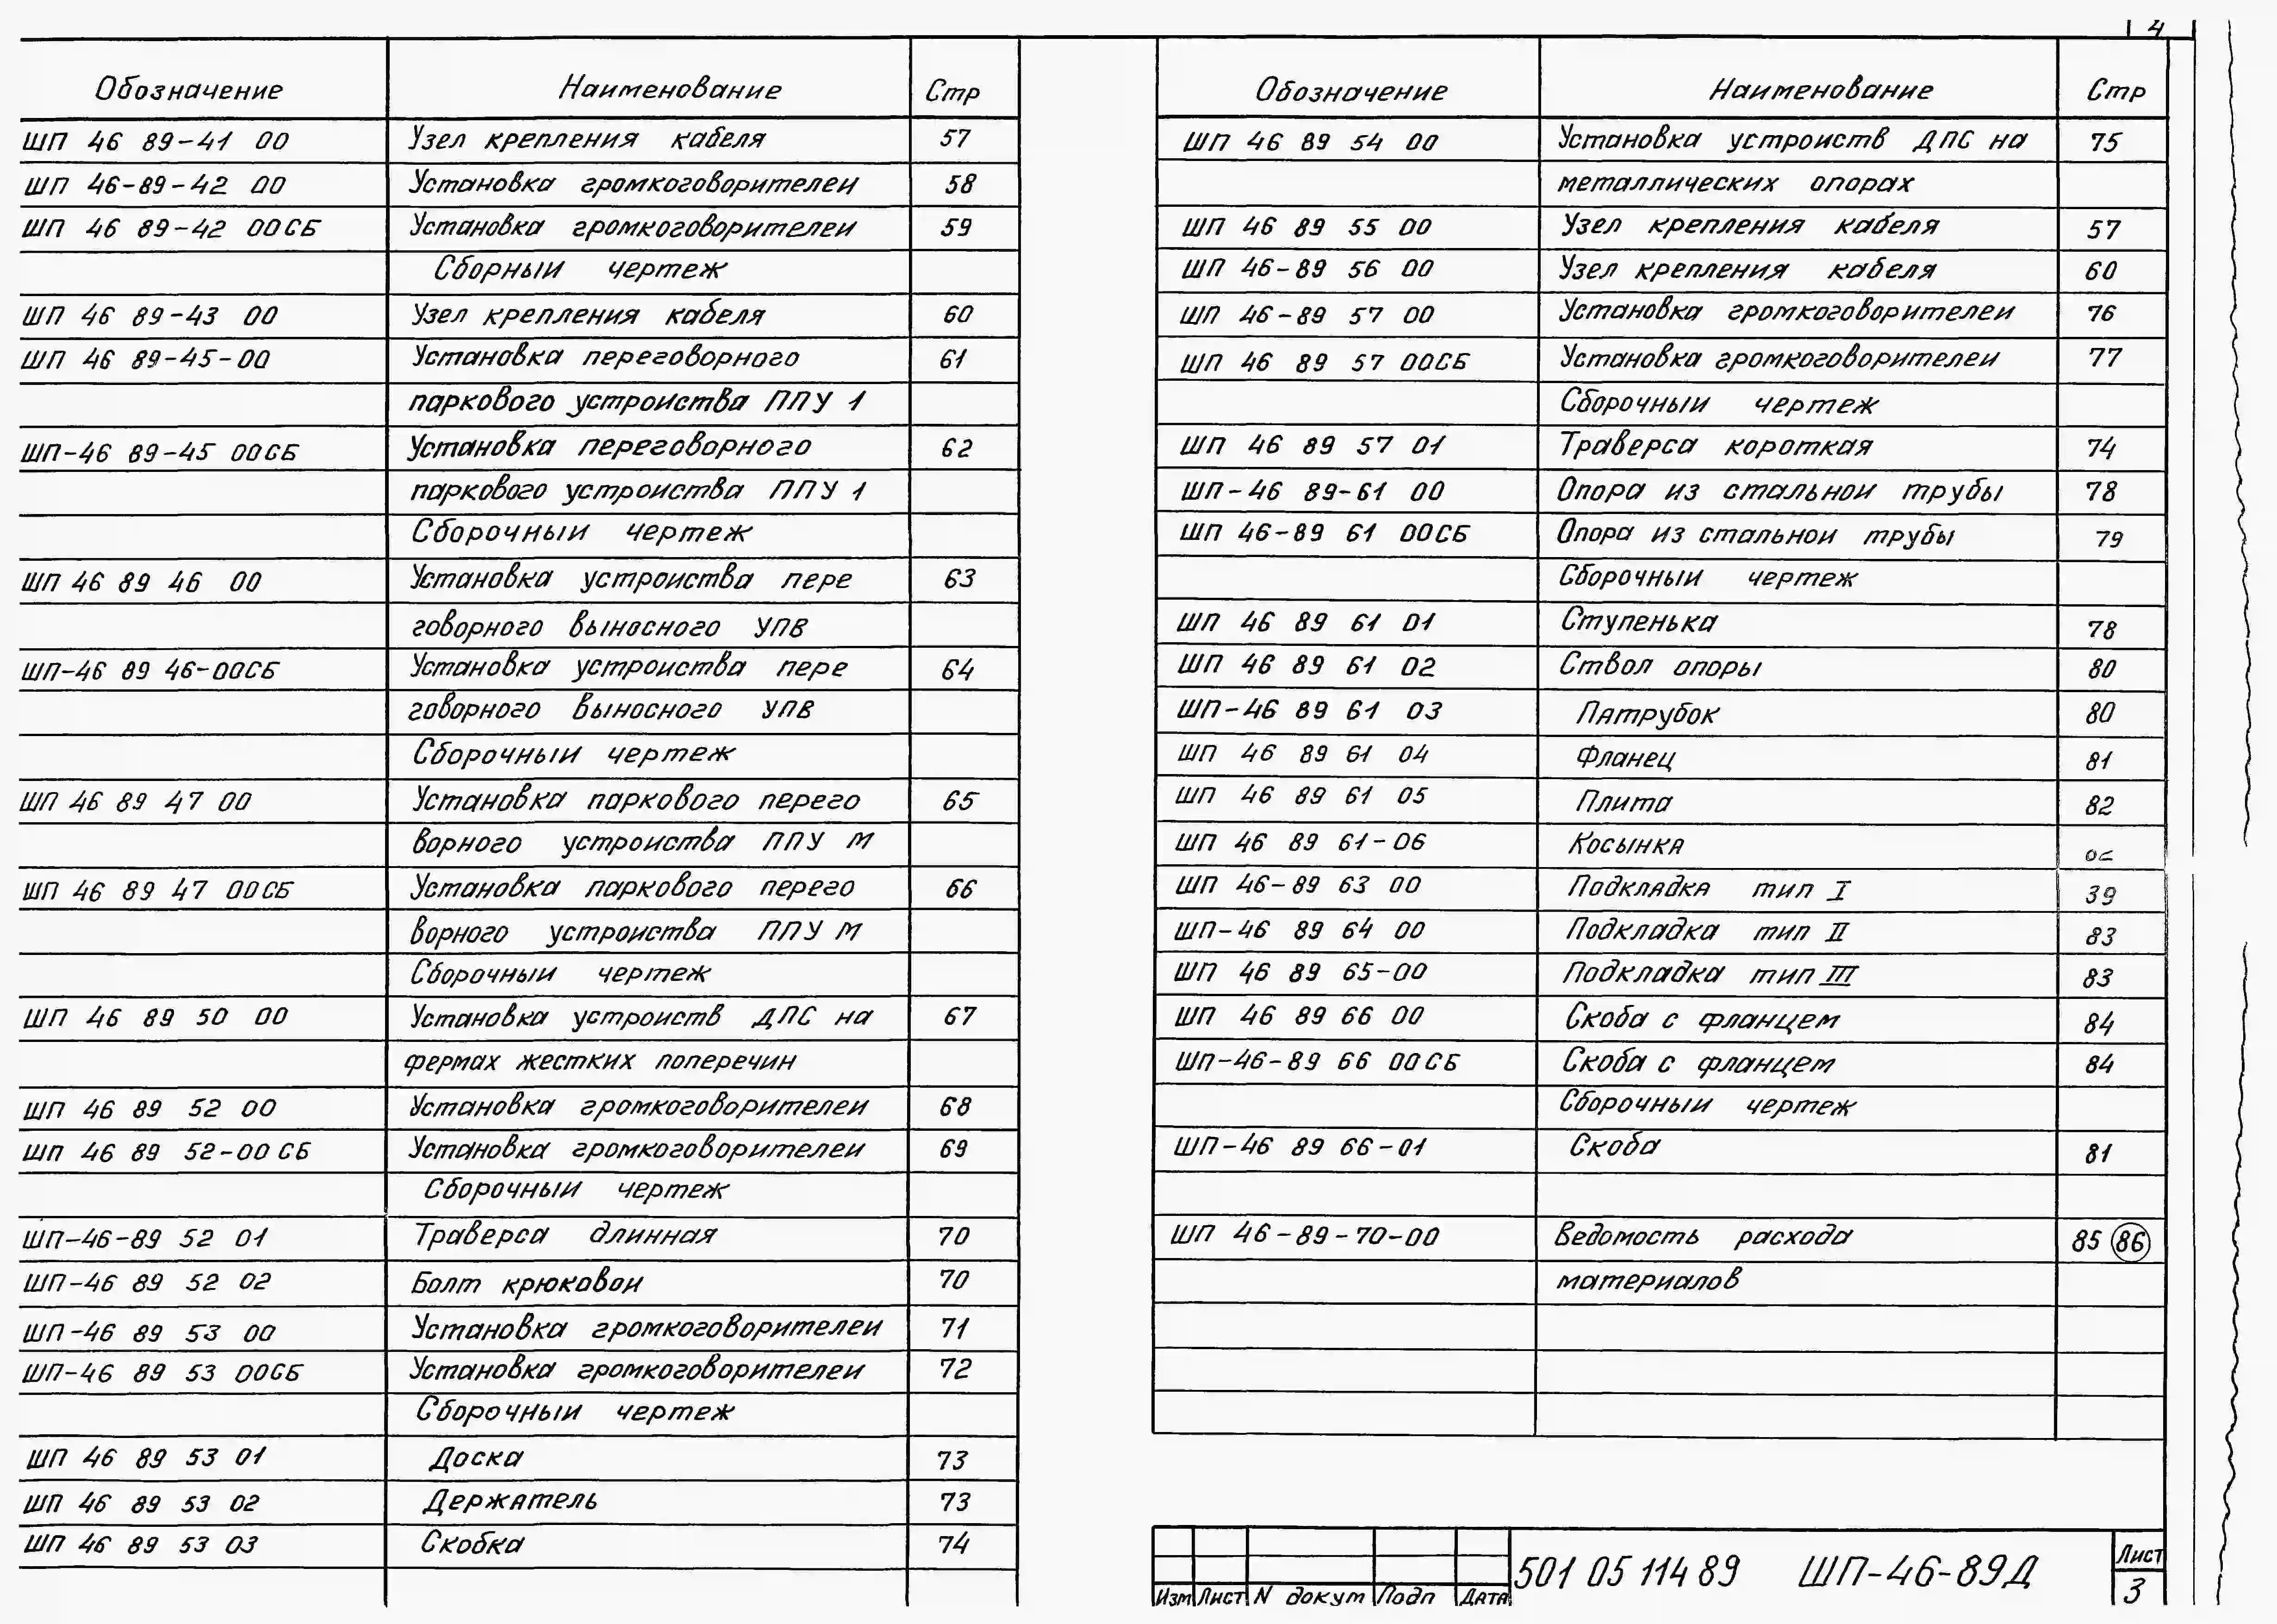 4
Обозначение Наименование Стр
ШП 46 89-41 00 Узел крепления кабеля 57
ШП 46-89-42 00 Установка громкоговорителеи 58
ШП 46 89-42 00СБ Установка громкоговорителеи 59
Сборныи чертеж
ШП 46 89-43 00 Узел крепления кабеля 60
ШП 46 89-45-00 Установка переговорного 61
паркового устроиства ППУ 1
ШП-46 89-45 00СБ Установка переговорного 62
паркового устроиства ППУ 1
Сборочныи чертеж
ШП 46 89 46 00 Установка устроиства пере 63
говорного выносного УПВ
ШП-46 89 46-00СБ Установка устроиства пере 64
говорного выносного УПВ
Сборочныи чертеж
ШП 46 89 47 00 Установка паркового перего 65
ворного устроиства ППУ М
ШП 46 89 47 00СБ Установка паркового перего 66
ворного устроиства ППУ М
Сборочныи чертеж
ШП 46 89 50 00 Установка устроиств ДПС на 67
фермах жестких поперечин
ШП 46 89 52 00 Установка громкоговорителеи 68
ШП 46 89 52-00 СБ Установка громкоговорителеи 69
Сборочныи чертеж
ШП-46-89 52 01 Траверса длинная 70
ШП-46 89 52 02 Болт крюковои 70
ШП-46 89 53 00 Установка громкоговорителеи 71
ШП-46 89 53 00СБ Установка громкоговорителеи 72
Сборочныи чертеж
ШП 46 89 53 01 Доска 73
ШП 46 89 53 02 Держатель 73
ШП 46 89 53 03 Скобка 74
Обозначение Наименование Стр
ШП 46 89 54 00 Установка устроиств ДПС на 75
металлических опорах
ШП 46 89 55 00 Узел крепления кабеля 57
ШП 46-89 56 00 Узел крепления кабеля 60
ШП 46-89 57 00 Установка громкоговорителеи 76
ШП 46 89 57 00СБ Установка громкоговорителеи 77
Сборочныи чертеж
ШП 46 89 57 01 Траверса короткая 74
ШП-46 89-61 00 Опора из стальнои трубы 78
ШП 46-89 61 00СБ Опора из стальнои трубы 79
Сборочныи чертеж
ШП 46 89 61 01 Ступенька 78
ШП 46 89 61 02 Ствол опоры 80
ШП-46 89 61 03 Патрубок 80
ШП 46 89 61 04 Фланец 81
ШП 46 89 61 05 Плита 82
ШП 46 89 61-06 Косынка
ШП 46-89 63 00 Подкладка тип I 39
ШП-46 89 64 00 Подкладка тип II 83
ШП 46 89 65-00 Подкладка тип III 83
ШП 46 89 66 00 Скоба с фланцем 84
ШП-46-89 66 00СБ Скоба с фланцем 84
Сборочныи чертеж
ШП-46 89 66-01 Скоба 81
ШП 46-89-70-00 Ведомость расхода 85 86
материалов
Изм Лист N докум Подп Дата
501 05 114 89 ШП-46-89Д
Лист
3